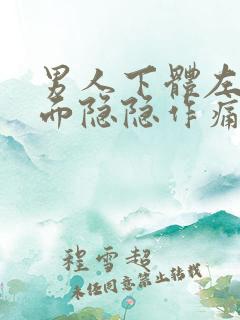 男人下體左
而隐隐作痛
程雪超
未经同意禁止转载